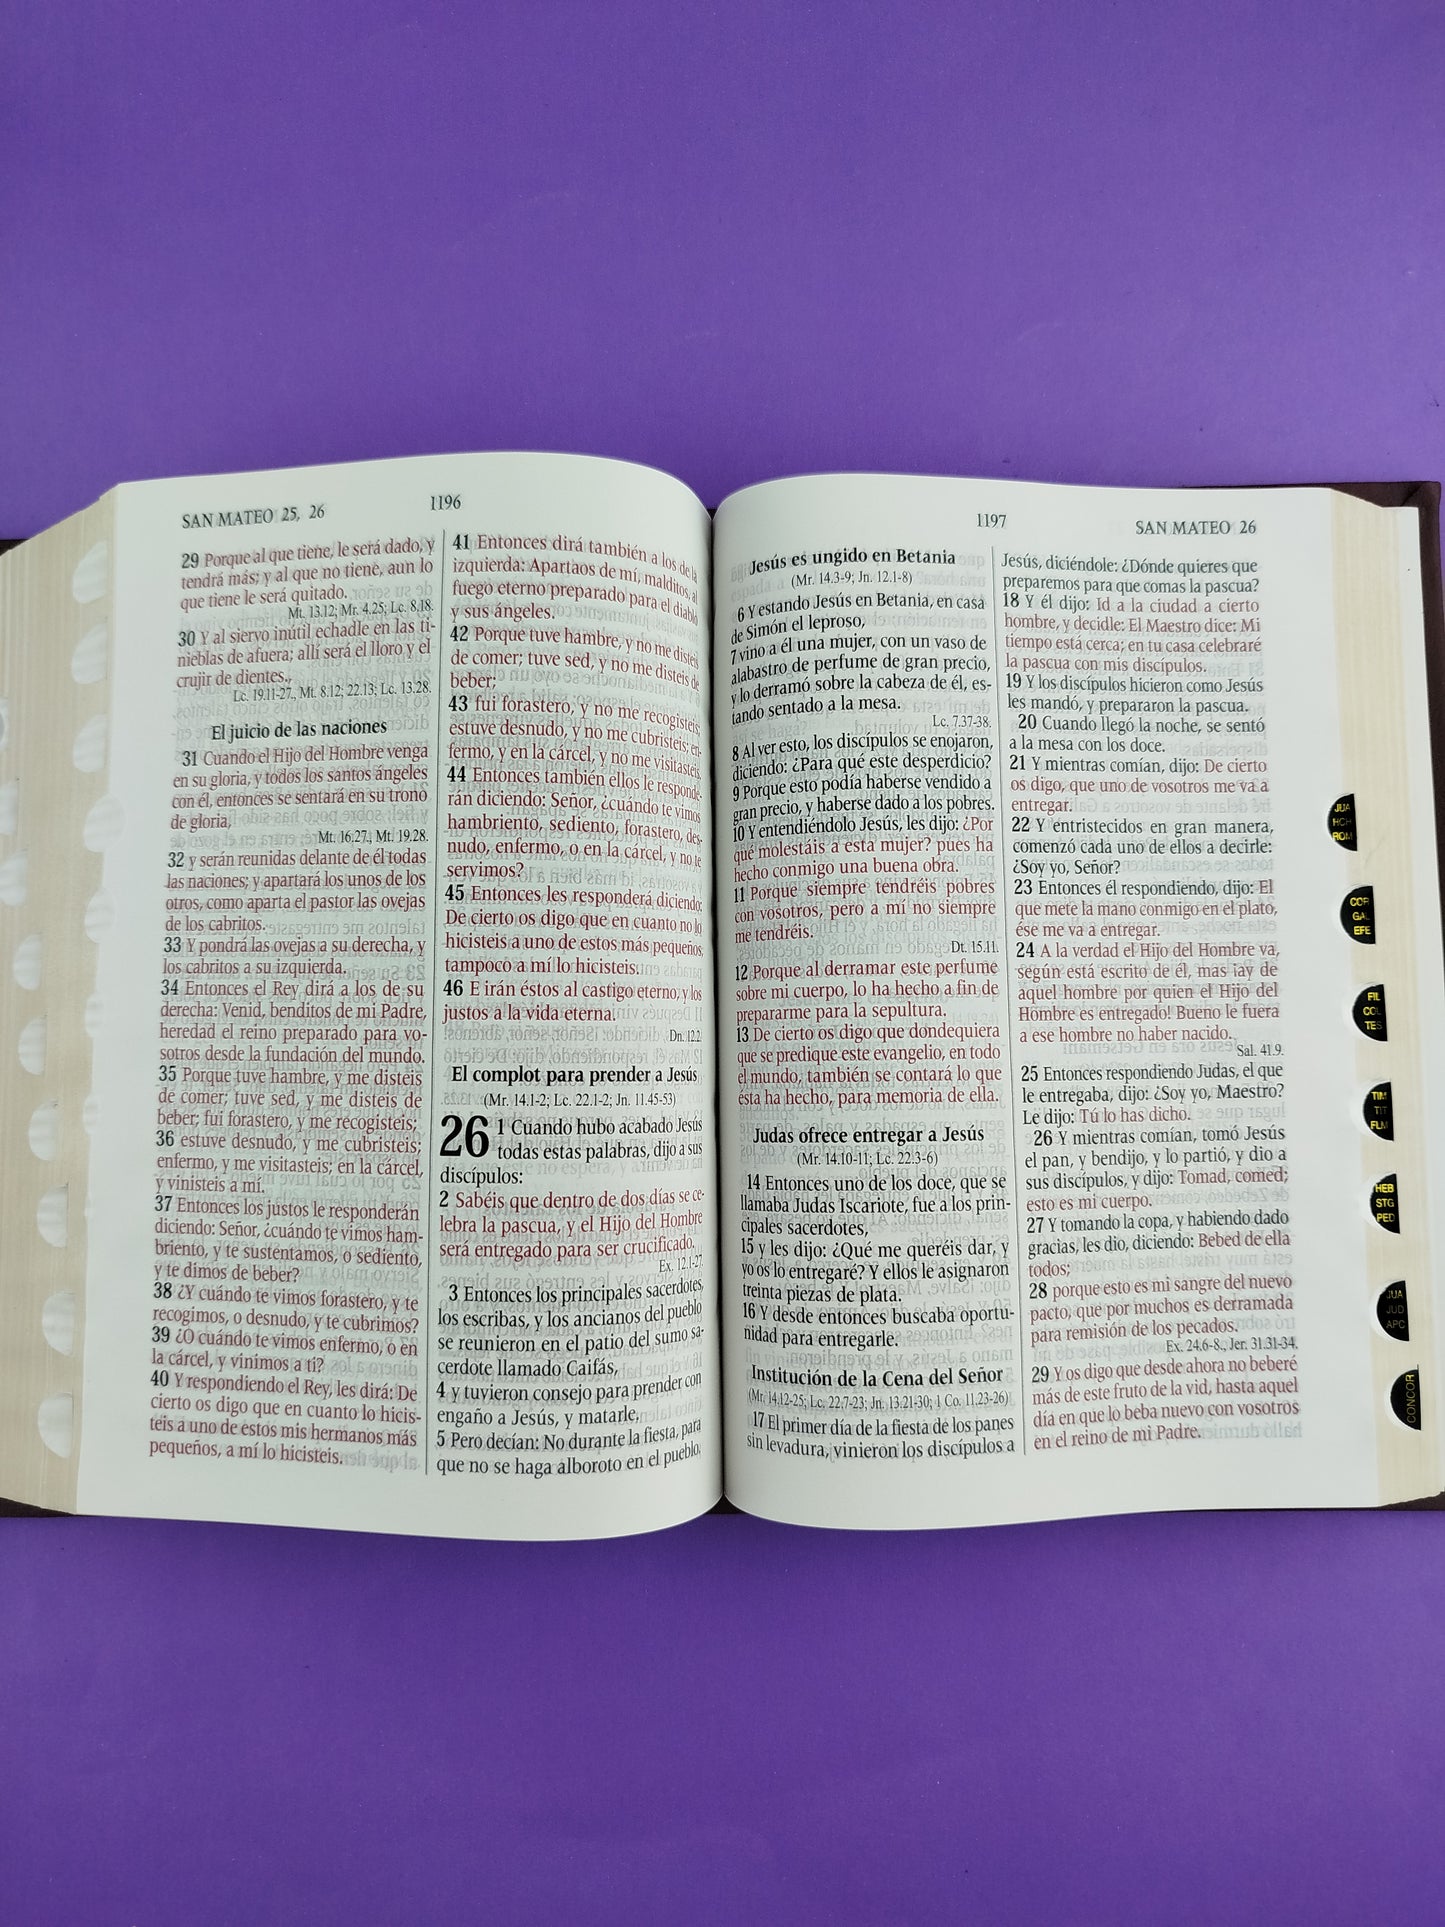 SAN MATEO 25, 26
1196
29 Porque al que tiene, le será dado, y
tendrá más; y al que no tiene, aun lo
que tiene le será quitado.
Mt. 13.12; Mr. 4.25; Lc. 8.18.
30 Y al siervo inútil echadle en las ti-
nieblas de afuera; allí será el lloro y el
crujir de dientes.
Lc. 19.11-27., Mt. 8.12; 22.13; Lc. 13.28.
El juicio de las naciones
31 Cuando el Hijo del Hombre venga
en su gloria, y todos los santos ángeles
con él, entonces se sentará en su trono
de gloria,
Mt. 16.27., Mt. 19.28.
32 y serán reunidas delante de él todas
las naciones; y apartará los unos de los
otros, como aparta el pastor las ovejas
de los cabritos.
33 Y pondrá las ovejas a su derecha, y
los cabritos a su izquierda.
34 Entonces el Rey dirá a los de su
derecha: Venid, benditos de mi Padre,
heredad el reino preparado para vo-
sotros desde la fundación del mundo.
35 Porque tuve hambre, y me disteis
de comer; tuve sed, y me disteis de
beber; fui forastero, y me recogisteis;
36 estuve desnudo, y me cubristeis;
enfermo, y me visitasteis; en la cárcel,
y vinisteis a mí.
37 Entonces los justos le responderán
diciendo: Señor, ¿cuándo te vimos ham-
briento, y te sustentamos, o sediento,
y te dimos de beber?
38 ¿Y cuándo te vimos forastero, y te
recogimos, o desnudo, y te cubrimos?
39 ¿O cuándo te vimos enfermo, o en
la cárcel, y vinimos a ti?
40 Y respondiendo el Rey, les dirá: De
cierto os digo que en cuanto lo hicis-
teis a uno de estos mis hermanos más
pequeños, a mí lo hicisteis.
41 Entonces dirá también a los de la
izquierda: Apartaos de mí, malditos, al
fuego eterno preparado para el diablo
y sus ángeles.
42 Porque tuve hambre, y no me disteis
de comer; tuve sed, y no me disteis de
beber;
43 fui forastero, y no me recogisteis;
estuve desnudo, y no me cubristeis; en-
fermo, y en la cárcel, y no me visitasteis.
44 Entonces también ellos le responde-
rán diciendo: Señor, ¿cuándo te vimos
hambriento, sediento, forastero, des-
nudo, enfermo, o en la cárcel, y no te
servimos?
45 Entonces les responderá diciendo:
De cierto os digo que en cuanto no lo
hicisteis a uno de estos más pequeños,
tampoco a mí lo hicisteis.
46 E irán éstos al castigo eterno, y los
justos a la vida eterna.
Dn. 12.2.
El complot para prender a Jesús
(Mr. 14.1-2; Lc. 22.1-2; Jn. 11.45-53)
26 1 Cuando hubo acabado Jesús
todas estas palabras, dijo a sus
discípulos:
2 Sabéis que dentro de dos días se ce-
lebra la pascua, y el Hijo del Hombre
será entregado para ser crucificado.
Ex. 12.1-27.
3 Entonces los principales sacerdotes,
los escribas, y los ancianos del pueblo
se reunieron en el patio del sumo sa-
cerdote llamado Caifás,
4 y tuvieron consejo para prender con
engaño a Jesús, y matarle.
5 Pero decían: No durante la fiesta, para
que no se haga alboroto en el pueblo.
1197
SAN MATEO 26
Jesús es ungido en Betania
(Mr. 14.3-9; Jn. 12.1-8)
6 Y estando Jesús en Betania, en casa
de Simón el leproso,
7 vino a él una mujer, con un vaso de
alabastro de perfume de gran precio,
y lo derramó sobre la cabeza de él, es-
tando sentado a la mesa.
Lc. 7.37-38.
8 Al ver esto, los discípulos se enojaron,
diciendo: ¿Para qué este desperdicio?
9 Porque esto podía haberse vendido a
gran precio, y haberse dado a los pobres.
10 Y entendiéndolo Jesús, les dijo: ¿Por
qué molestáis a esta mujer? pues ha
hecho conmigo una buena obra.
11 Porque siempre tendréis pobres
con vosotros, pero a mí no siempre
me tendréis.
Dt. 15.11.
12 Porque al derramar este perfume
sobre mi cuerpo, lo ha hecho a fin de
prepararme para la sepultura.
13 De cierto os digo que dondequiera
que se predique este evangelio, en todo
el mundo, también se contará lo que
ésta ha hecho, para memoria de ella.
Judas ofrece entregar a Jesús
(Mr. 14.10-11; Lc. 22.3-6)
14 Entonces uno de los doce, que se
llamaba Judas Iscariote, fue a los prin-
cipales sacerdotes,
15 y les dijo: ¿Qué me queréis dar, y
yo os lo entregaré? Y ellos le asignaron
treinta piezas de plata.
16 Y desde entonces buscaba oportu-
nidad para entregarle.
Institución de la Cena del Señor
(Mr. 14.12-25; Lc. 22.7-23; Jn. 13.21-30; 1 Co. 11.23-26)
17 El primer día de la fiesta de los panes
sin levadura, vinieron los discípulos a
Jesús, diciéndole: ¿Dónde quieres que
preparemos para que comas la pascua?
18 Y él dijo: Id a la ciudad a cierto
hombre, y decidle: El Maestro dice: Mi
tiempo está cerca; en tu casa celebraré
la pascua con mis discípulos.
19 Y los discípulos hicieron como Jesús
les mandó, y prepararon la pascua.
20 Cuando llegó la noche, se sentó
a la mesa con los doce.
21 Y mientras comían, dijo: De cierto
os digo, que uno de vosotros me va a
entregar.
22 Y entristecidos en gran manera,
comenzó cada uno de ellos a decirle:
¿Soy yo, Señor?
23 Entonces él respondiendo, dijo: El
que mete la mano conmigo en el plato,
ése me va a entregar.
24 A la verdad el Hijo del Hombre va,
según está escrito de él, mas ¡ay de
aquel hombre por quien el Hijo del
Hombre es entregado! Bueno le fuera
a ese hombre no haber nacido.
Sal. 41.9.
25 Entonces respondiendo Judas, el que
le entregaba, dijo: ¿Soy yo, Maestro?
Le dijo: Tú lo has dicho.
26 Y mientras comían, tomó Jesús
el pan, y bendijo, y lo partió, y dio a
sus discípulos, y dijo: Tomad, comed;
esto es mi cuerpo.
27 Y tomando la copa, y habiendo dado
gracias, les dio, diciendo: Bebed de ella
todos;
28 porque esto es mi sangre del nuevo
pacto, que por muchos es derramada
para remisión de los pecados.
Ex. 24.6-8., Jer. 31.31-34.
29 Y os digo que desde ahora no beberé
más de este fruto de la vid, hasta aquel
día en que lo beba nuevo con vosotros
en el reino de mi Padre.
JUA
HCH
ROM
COR
GAL
EFE
FIL
COL
TES
TIM
TIT
FLM
HEB
STG
PED
JUA
JUD
APC
CONCOR